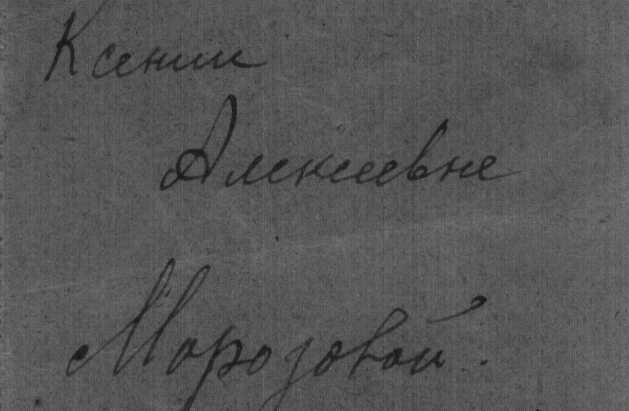 Ксении
Алексеевне
Морозовой.